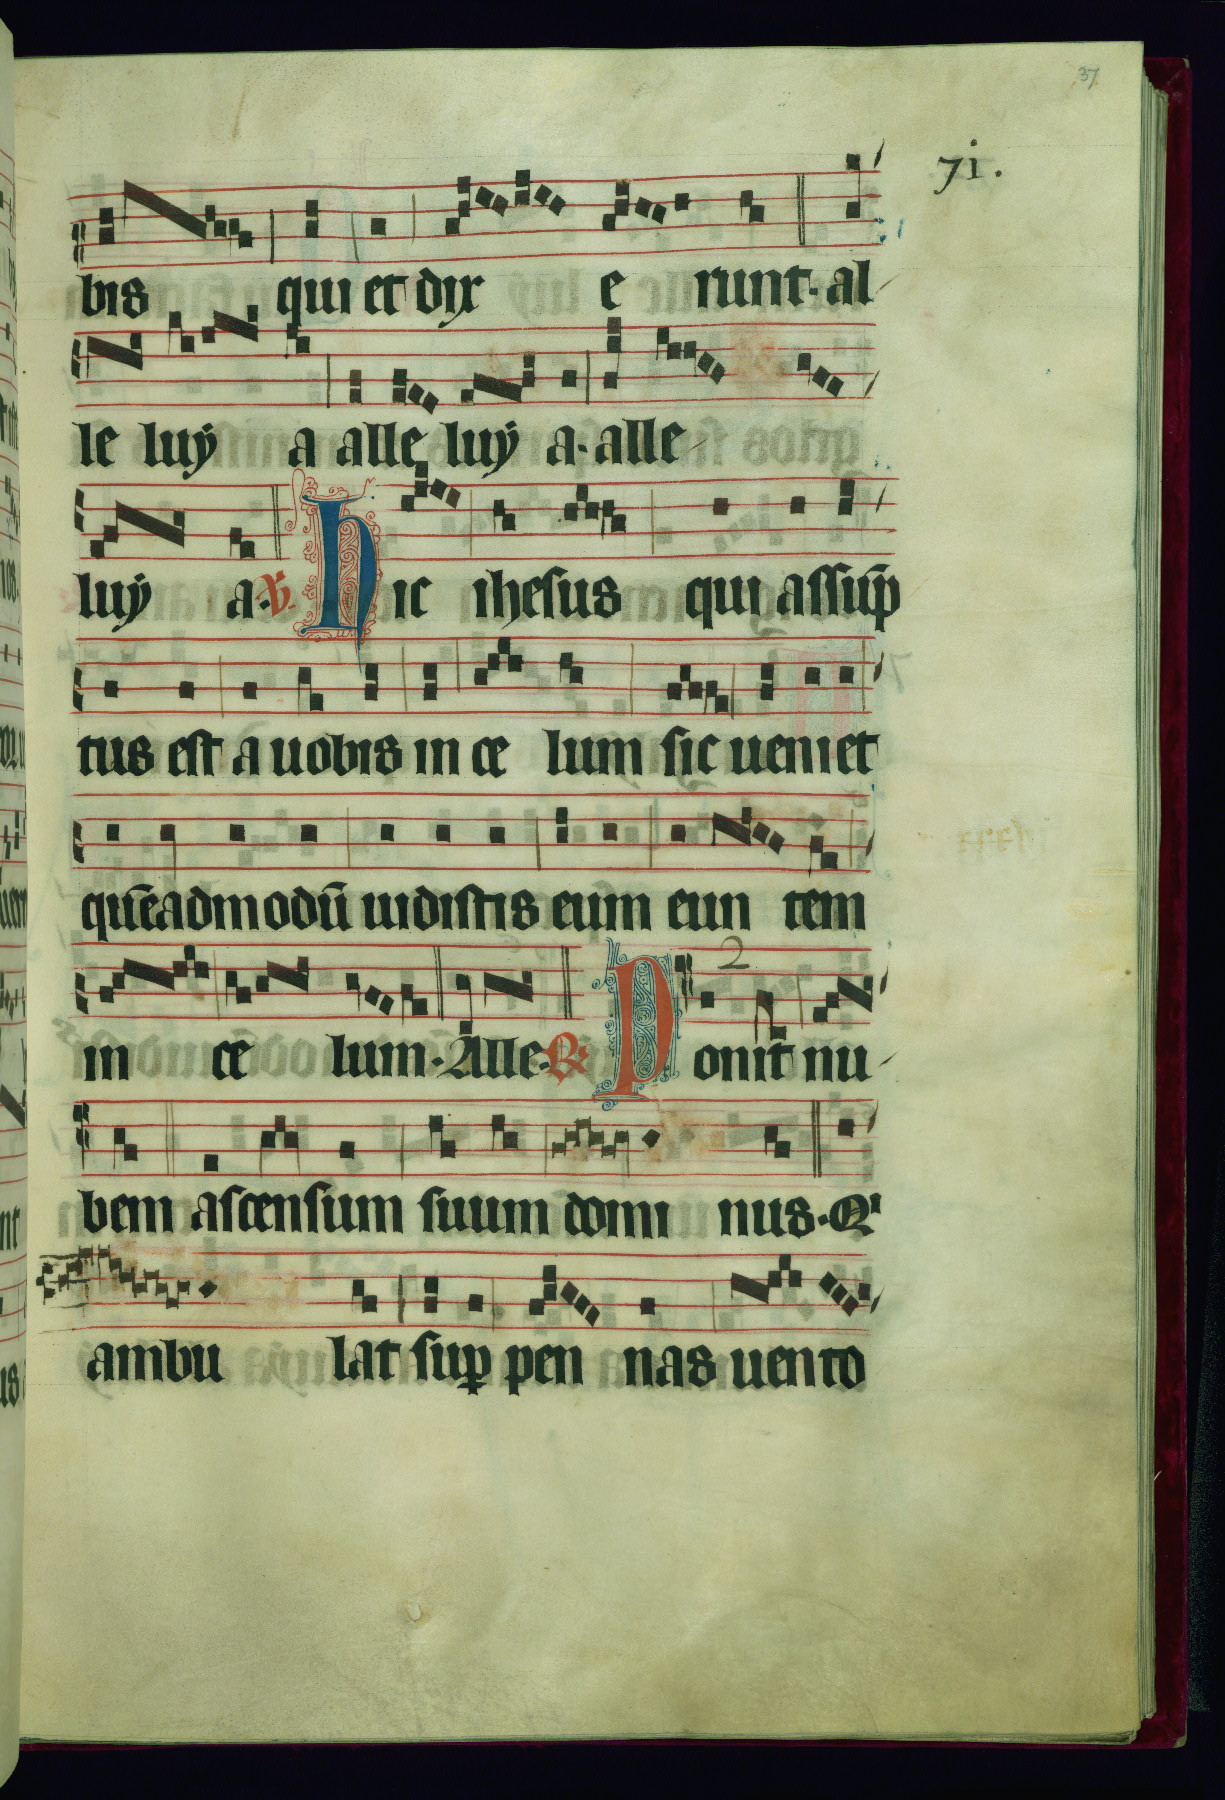 37
71.
bis qui et dix e runt · al
le luÿ a alle luÿ a · alle
luÿ a · ℣ hic ihesus qui assup̄
tus est a uobis in ce lum sic ueniet
quēadmodū uidistis eum eun tem
2
in ce lum · Alle · ℟ Ponit nu
bem ascensum suum domi nus · Qⁱ
ambu lat suꝑ pen nas uento